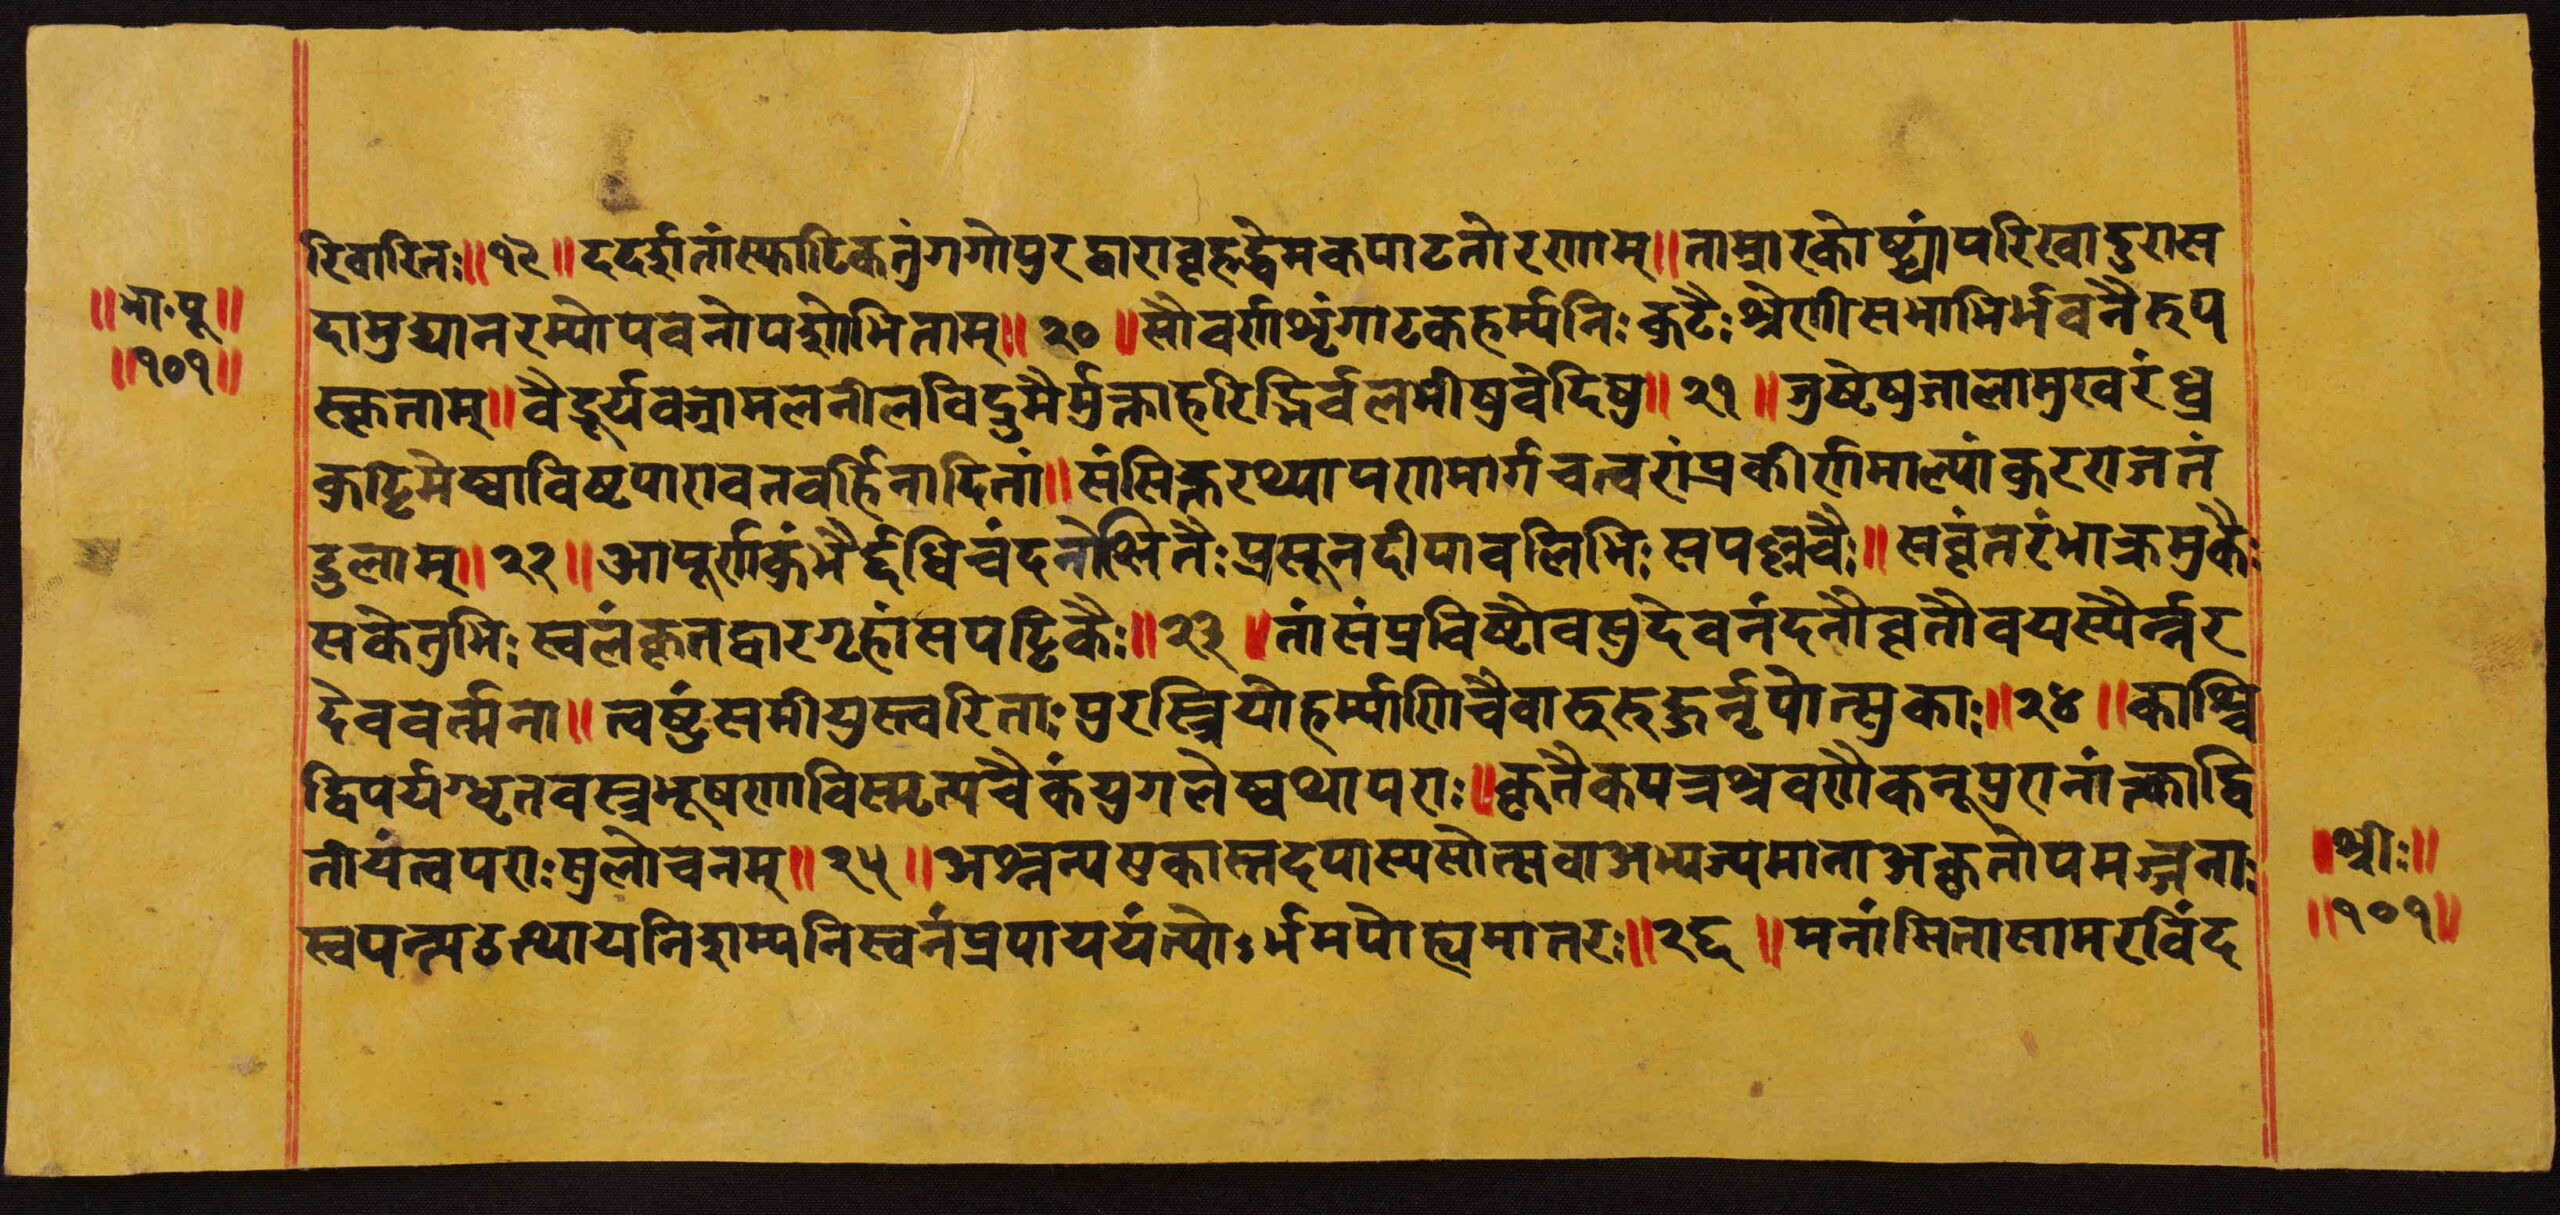 रिवारितः॥१९॥ददर्शतांस्फाटिकतुंगगोपुरद्वारावृहद्धेमकपाटतोरणाम्॥ताम्रारकोष्ट्यांपरिखादुरास
॥भा.पू॥
॥१०१॥
दामुद्यानरम्योपवनोपशोभिताम्॥२०॥सौवर्णशृंगाटकहर्म्यनिःकुटैःश्रेणीसभाभिर्भवनैरुप
स्कृताम्॥वैदूर्यवज्रामलनीलविद्रुमैर्मुक्ताहरिद्भिर्वलभीषुवेदिषु॥२१॥जुष्टेषुजालामुखरंध्र
कुट्टिमेष्वाविष्टपारावतवर्हिनादितां॥संसिक्तरथ्यापणमार्गचत्वरांप्रकीर्णमाल्यांकुरराजतं
डुलाम्॥२२॥आपूर्णकुंभैर्द्दधिचंदनोक्षितैःप्रसूनदीपावलिभिःसपल्लवैः॥सवृंतरंभाक्रमुकैः
सकेतुभिःस्वलंकृतद्वारगृहांसपट्टिकैः॥२३॥तांसंप्रविष्टौवसुदेवनंदनौवृतौवयस्यैर्न्नर
देववर्त्मना॥त्वष्टुंसमीयुस्त्वरिताःपुरस्त्रियोहर्म्याणिचैवारुरुहुर्नृपोत्सुकाः॥२४॥काश्चि
द्विपर्यग्धृतवस्त्रभूषणाविस्मृत्यचैकंयुगलेष्वथापराः॥कृतैकपत्रश्रवणैकनूपुरानांत्काद्वि
तीयंत्वपराःसुलोचनम्॥२५॥अश्नन्त्यएकास्तदपास्यसोत्सवाअभ्यज्यमानाअकृतोपमज्जनाः
॥श्रीः॥
॥१०१॥
स्वपन्त्यउत्थायनिशम्यनिस्वनंप्रपाययंत्योर्भमपोह्यमातरः॥२६॥मनांसितासामरविंद